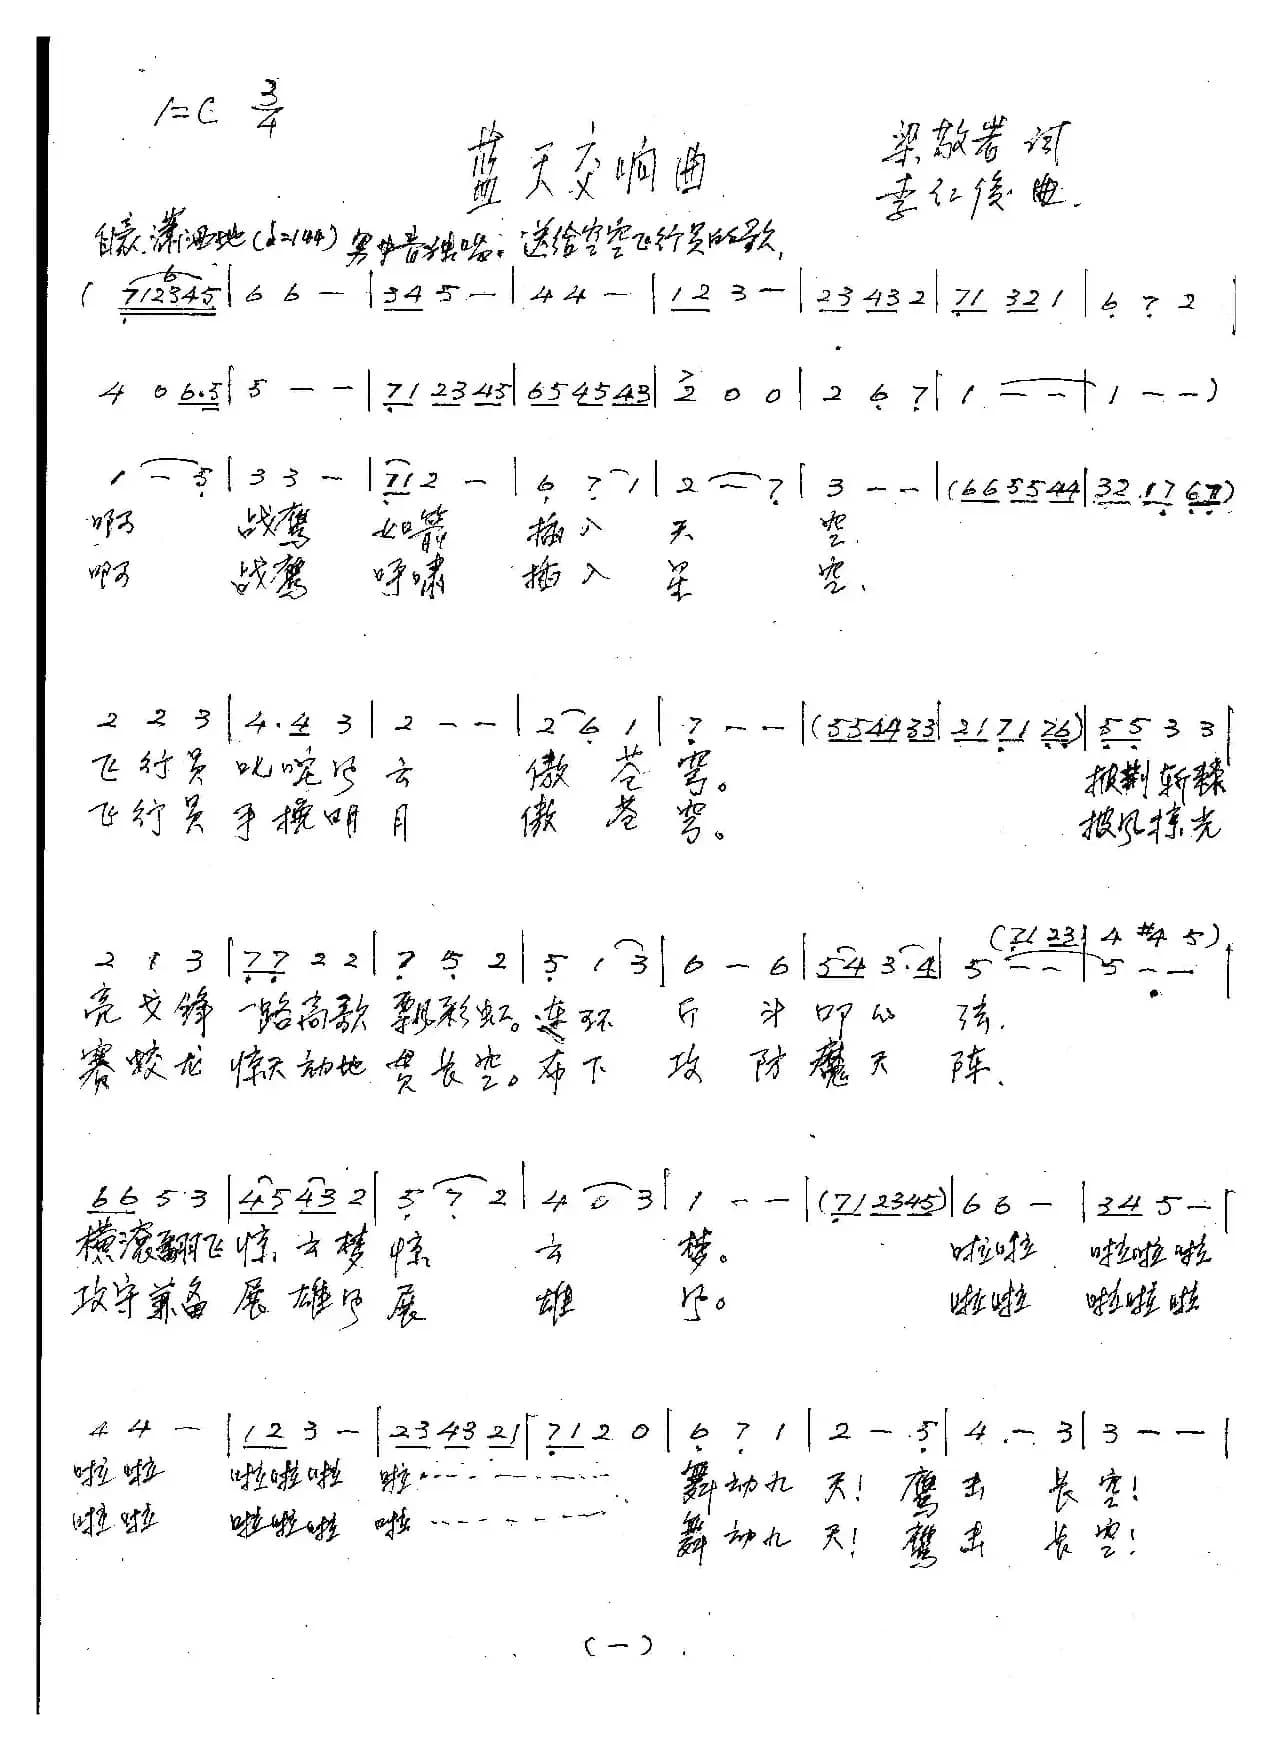 1=C 3/4
蓝天交响曲
梁敬岩 词
李仁俊 曲.
自豪.潇洒地(♩=144) 男中音独唱: 送给空军飞行员的歌,
( 712345 | 6 6 — | 34 5 — | 4 4 — | 12 3 — | 23 43 2 | 71 32 1 | 6 7 2 |
4 0 6.5 | 5 — — | 71 23 45 | 65 45 43 | 2 0 0 | 2 6 7 | 1 — — | 1 — — )
1 — 5 | 3 3 — | 71 2 — | 6 7 1 | 2 — 7 | 3 — — | (66 55 44 | 32 17 67)
啊 战鹰 如箭 插入 天 空.
啊 战鹰 呼啸 插入 星 空.
2 2 3 | 4. 4 3 | 2 — — | 2 6 1 | 7 — — | (55 44 33 | 21 71 76) | 55 3 3 |
飞行员 叱咤风 云 傲 苍 穹。 披荆斩棘
飞行员 手挽明 月 傲 苍 穹。 披风掠光
(71 23 | 4 #4 5)
2 1 3 | 77 2 2 | 7 5 2 | 5 1 3 | 6 — 6 | 54 3.4 | 5 — — | 5 — — |
亮戈锋 一路高歌 飘彩虹。连环 斤 斗 叩心 弦.
赛蛟龙 惊天动地 贯长空。布下 攻 防 魔天 阵.
66 5 3 | 45 43 2 | 5 7 2 | 4 0 3 | 1 — — | (71 23 45) | 6 6 — | 34 5 — |
横滚翻飞 惊云梦 惊 云 梦。 啦啦 啦啦啦
攻守兼备 展雄风 展 雄 风。 啦啦 啦啦啦
4 4 — | 12 3 — | 23 43 21 | 71 2 0 | 6 7 1 | 2 — 5 | 4 . — 3 | 3 — — |
啦啦 啦啦啦 啦………… 舞动九 天! 鹰 击 长 空!
啦啦 啦啦啦 啦………… 舞动九 天! 鹰 击 长 空!
(一)